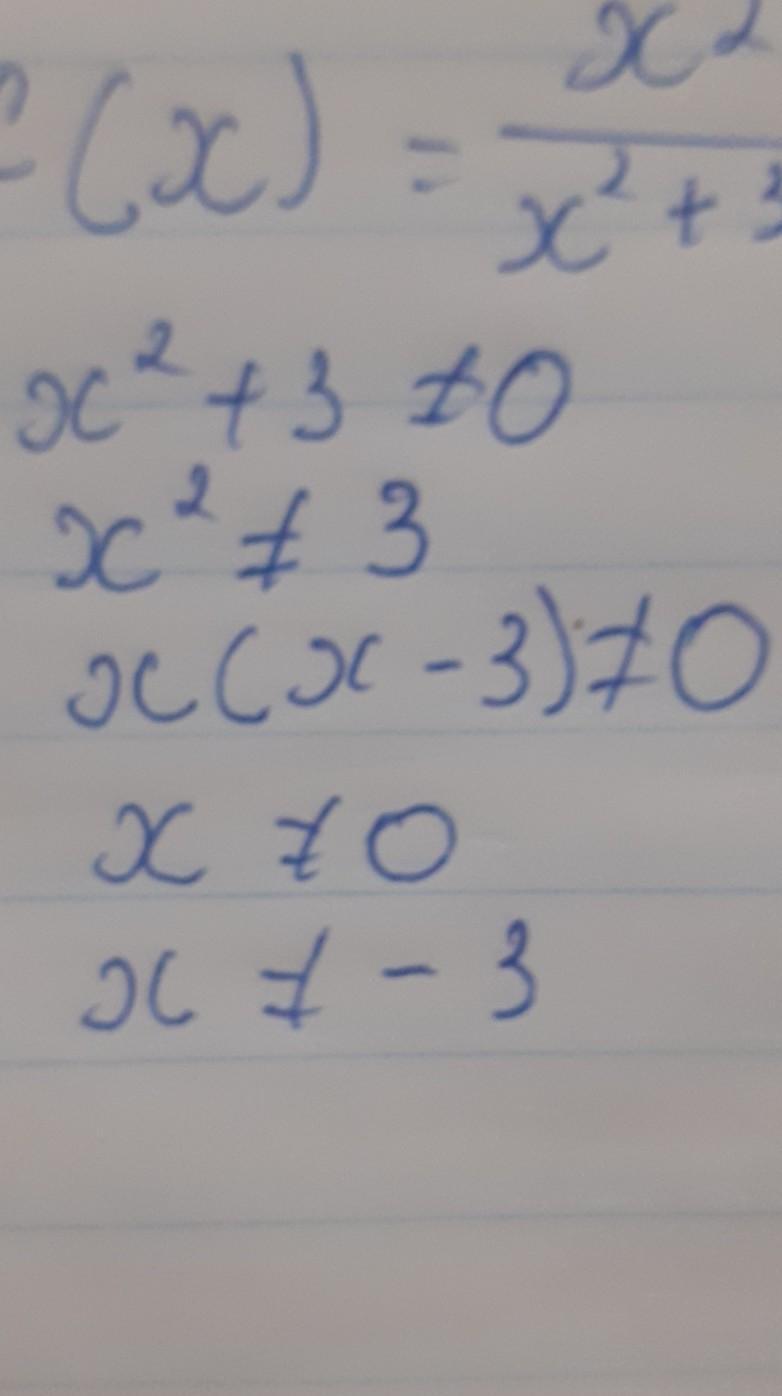 f(x) = x²/x² + 3
x² + 3 ≠ 0
x² ≠ 3
x(x - 3) ≠ 0
x ≠ 0
x ≠ - 3